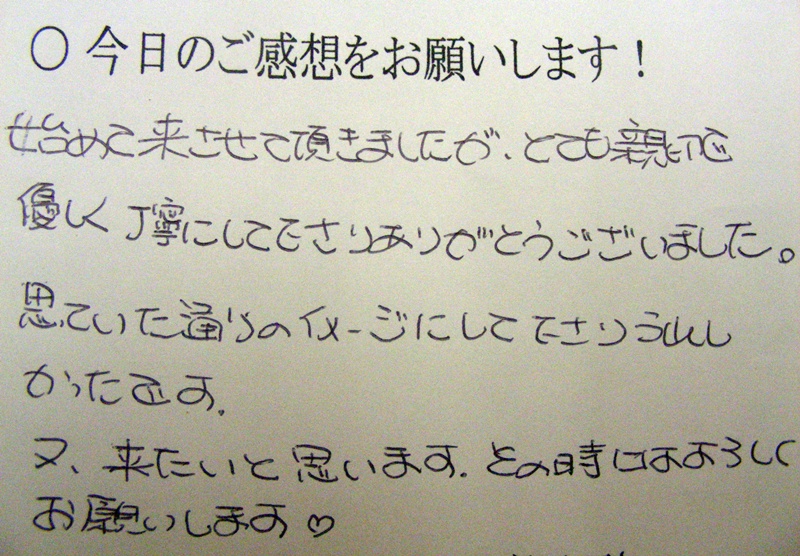 〇今日のご感想をお願いします！
始めて来させて頂きましたが、とても親切で
優しく丁寧にして下さりありがとうございました。
思っていた通りのイメージにして下さりうれし
かったです。
又、来たいと思います。その時にはよろしく
お願いします♡